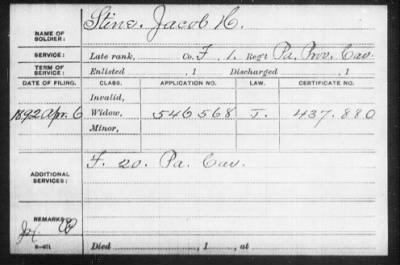 NAME OF SOLDIER: Stine, Jacob H.
SERVICE: Late rank, Co. F, 1 Reg't Pa. Prov. Cav.
TERM OF SERVICE: Enlisted , 1 Discharged , 1
DATE OF FILING. CLASS. APPLICATION NO. LAW. CERTIFICATE NO.
Invalid,
1892 Apr. 6 Widow, 546568 J. 437.880
Minor,
ADDITIONAL SERVICES: F. 20. Pa. Cav.
REMARKS:
Died , 1 , at